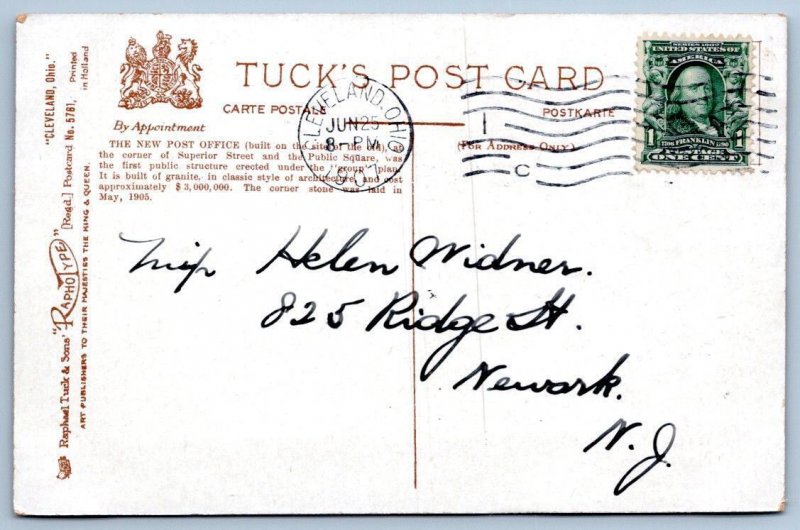 TUCK'S POST CARD
CARTE POSTALE
POSTKARTE
(FOR ADDRESS ONLY)
By Appointment
THE NEW POST OFFICE (built on the site of the old), at
the corner of Superior Street and the Public Square, was
the first public structure erected under the "group" plan.
It is built of granite, in classic style of architecture, and cost
approximately $3,000,000. The corner stone was laid in
May, 1905.
CLEVELAND, OHIO
JUN 25
8-PM
1907
1
C
SERIES 1902
UNITED STATES OF
AMERICA
1706 FRANKLIN 1790
1 POSTAGE 1
ONE CENT
Miss Helen Widner.
825 Ridge St.
Newark.
N.J.
"CLEVELAND, Ohio."
Raphael Tuck & Sons' "RAPHOTYPE" [Regd.] Postcard No. 5781.
Printed
in Holland
ART PUBLISHERS TO THEIR MAJESTIES THE KING & QUEEN.